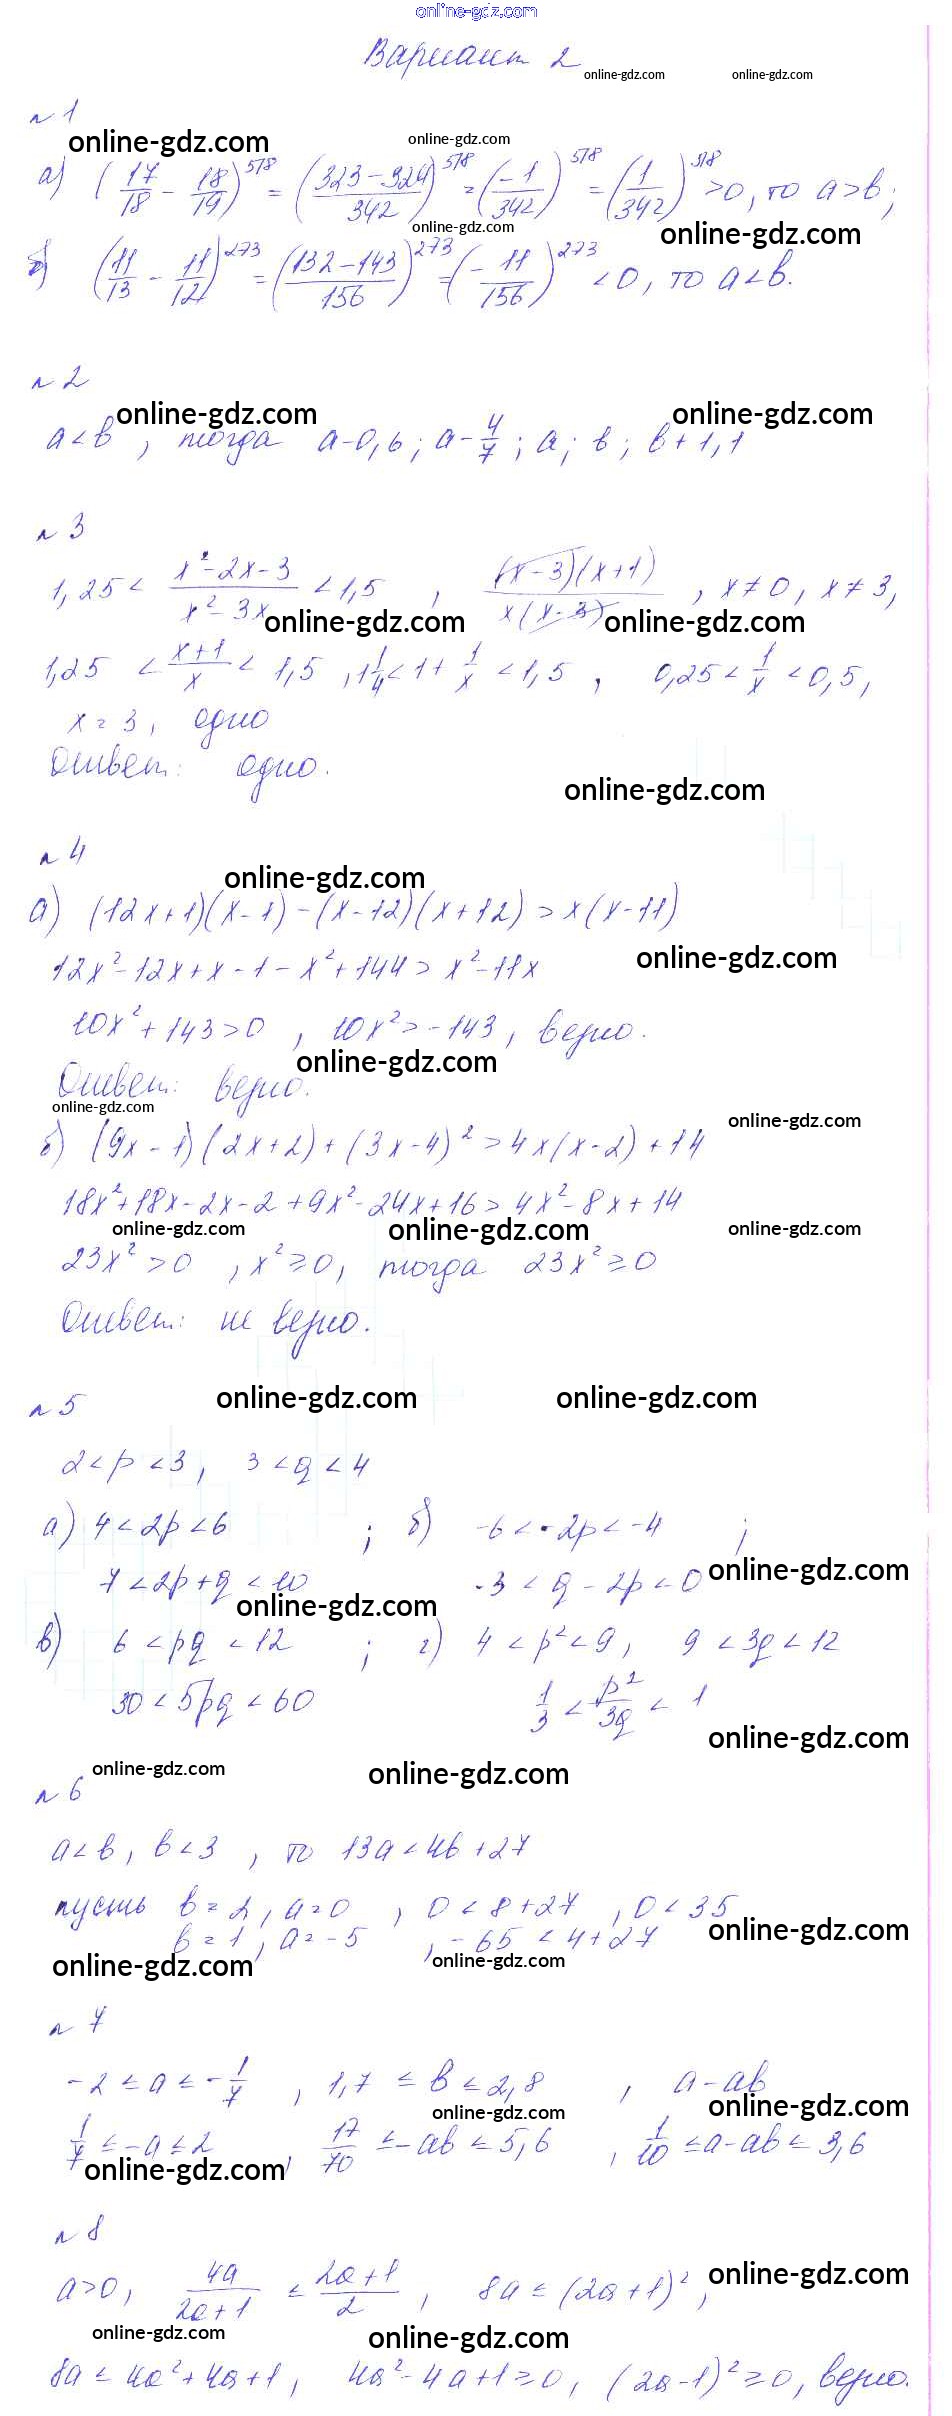 online-gdz.com
Вариант 2
online-gdz.com online-gdz.com
№ 1
online-gdz.com online-gdz.com
а) (17/18 - 18/19)^578 = ((323-324)/342)^578 = (-1/342)^578 = (1/342)^578 > 0, то a > b;
online-gdz.com online-gdz.com
б) (11/13 - 11/12)^273 = ((132-143)/156)^273 = (-11/156)^273 < 0, то a < b.
№ 2
online-gdz.com online-gdz.com
a < b, тогда a-0,6; a-4/7; a; b; b+1,1
№ 3
1,25 < (x²-2x-3)/(x²-3x) < 1,5, (x-3)(x+1)/(x(x-3)), x≠0, x≠3,
online-gdz.com online-gdz.com
1,25 < (x+1)/x < 1,5, 1 1/4 < 1+1/x < 1,5, 0,25 < 1/x < 0,5,
x = 3, одно
Ответ: одно.
online-gdz.com
№ 4
online-gdz.com
а) (12x+1)(x-1)-(x-12)(x+12) > x(x-11)
online-gdz.com
12x²-12x+x-1-x²+144 > x²-11x
10x²+143 > 0, 10x² > -143, верно.
online-gdz.com
Ответ: верно.
online-gdz.com online-gdz.com
б) (9x-1)(2x+2)+(3x-4)² > 4x(x-2)+14
18x²+18x-2x-2+9x²-24x+16 > 4x²-8x+14
online-gdz.com online-gdz.com online-gdz.com
23x² > 0, x² ≥ 0, тогда 23x² ≥ 0
Ответ: не верно.
online-gdz.com online-gdz.com
№ 5
2 < p < 3, 3 < q < 4
а) 4 < 2p < 6; б) -6 < -2p < -4;
online-gdz.com
7 < 2p+q < 10 -3 < q-2p < 0
online-gdz.com
в) 6 < pq < 12; г) 4 < p² < 9, 9 < 3q < 12
30 < 5pq < 60 1/3 < p²/3q < 1
online-gdz.com
online-gdz.com online-gdz.com
№ 6
a < b, b < 3, то 13a < 4b+27
пусть b = 2, a = 0, 0 < 8+27, 0 < 35
online-gdz.com
b = 1, a = -5, -65 < 4+27
online-gdz.com online-gdz.com
№ 7
-2 ≤ a ≤ -1/7, 1,7 ≤ b ≤ 2,8, a-ab
online-gdz.com online-gdz.com
1/7 ≤ -a ≤ 2, 17/70 ≤ -ab ≤ 5,6, 1/10 ≤ a-ab ≤ 3,6
online-gdz.com
№ 8
online-gdz.com
a > 0, 4a/(2a+1) ≤ (2a+1)/2, 8a ≤ (2a+1)²,
online-gdz.com online-gdz.com
8a ≤ 4a²+4a+1, 4a²-4a+1 ≥ 0, (2a-1)² ≥ 0, верно.